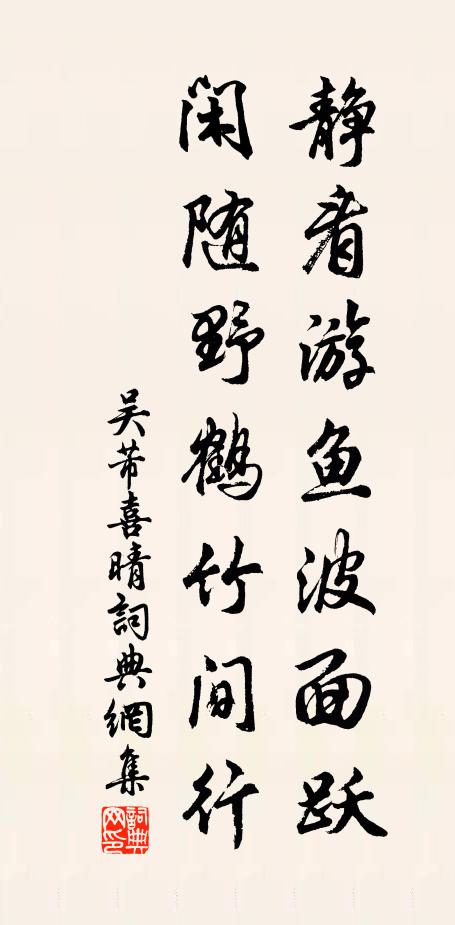 静看游鱼波面跃
闲随野鹤竹间行
吴芾喜晴詞典網集
詞典网印